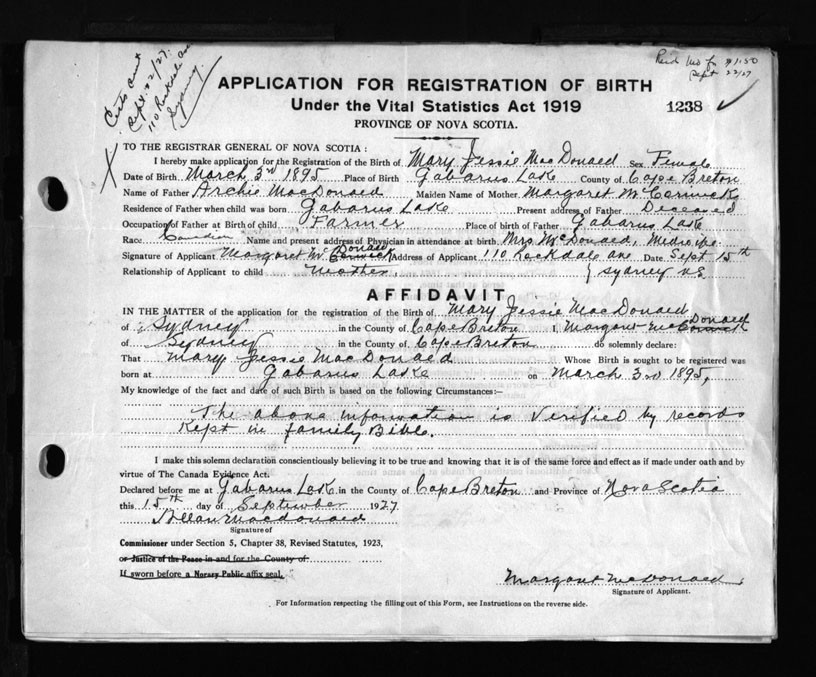 Certs sent
Sept. 22/27.
110 Rockdale ave
Sydney.
$1.50
Sept 22/27
APPLICATION FOR REGISTRATION OF BIRTH
Under the Vital Statistics Act 1919
1238
PROVINCE OF NOVA SCOTIA.
TO THE REGISTRAR GENERAL OF NOVA SCOTIA:
I hereby make application for the Registration of the Birth of Mary Jessie MacDonald Sex Female
Date of Birth March 3rd 1895 Place of Birth Gabarus Lake County of Cape Breton
Name of Father Archie MacDonald Maiden Name of Mother Margaret McCormick
Residence of Father when child was born Gabarus Lake Present address of Father Deceased
Occupation of Father at Birth of child Farmer Place of birth of Father Gabarus Lake
Race Canadian Name and present address of Physician in attendance at birth Mrs. McDonald, Medwife
Signature of Applicant Margaret McDonald Address of Applicant 110 Rockdale ave Date Sept 15th
Relationship of Applicant to child Mother. Sydney N.S.
AFFIDAVIT
IN THE MATTER of the application for the registration of the Birth of Mary Jessie MacDonald
of Sydney in the County of Cape Breton I, Margaret McDonald
of Sydney in the County of Cape Breton do solemnly declare:
That Mary Jessie MacDonald Whose Birth is sought to be registered was
born at Gabarus Lake on March 3rd 1895,
My knowledge of the fact and date of such Birth is based on the following Circumstances:—
The above information is verified by records
Kept in family Bible.
I make this solemn declaration conscientiously believing it to be true and knowing that it is of the same force and effect as if made under oath and by
virtue of The Canada Evidence Act.
Declared before me at Gabarus Lake in the County of Cape Breton and Province of Nova Scotia
this 15th day of September 1927
Allan Macdonald
Signature of
Commissioner under Section 5, Chapter 38, Revised Statutes, 1923,
or Justice of the Peace in and for the County of
If sworn before a Notary Public affix seal.
Margaret McDonald
Signature of Applicant.
For Information respecting the filling out of this Form, see Instructions on the reverse side.